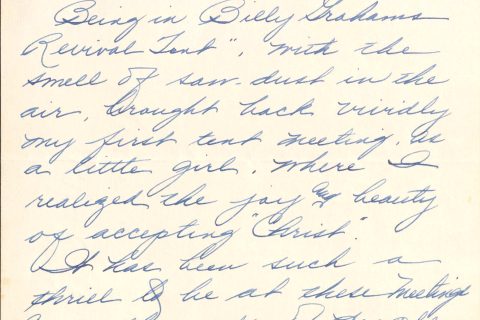 Being in Billy Grahams
Revival Tent", with the
smell of saw-dust in the
air, brought back vividly
my first tent meeting, as
a little girl, where I
realized the joy and beauty
of accepting "Christ".
It has been such a
thrill to be at these meetings